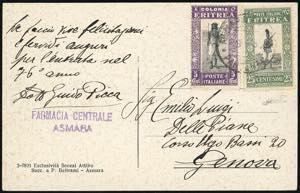 Le faccio vive felicitazioni
e fervidi auguri
per l'entrata nel
76° anno
Dott. Guido Ricca
FARMACIA CENTRALE
ASMARA
3-7821 Esclusività Sevasi Attilio
Succ. a P. Beltrami - Asmara
COLONIA
ERITREA
5
5
POSTE
ITALIANE
POSTE ITALIANE
ERITREA
25 CENTESIMI 25
Sig. Emilio Luigi
Delle Piane
Corso Ugo Bassi 20
Genova